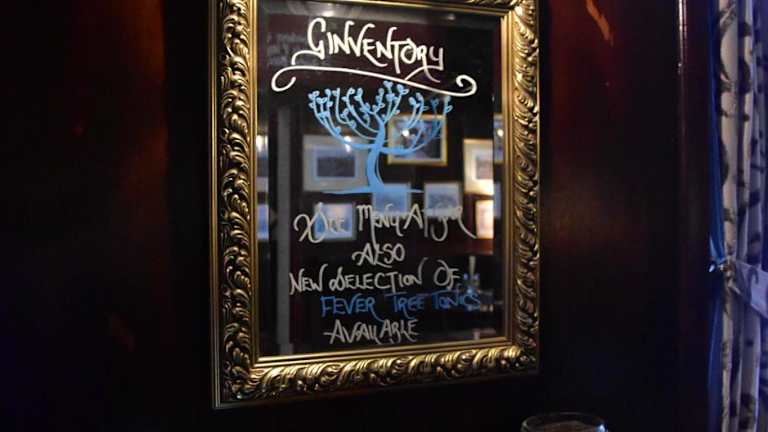 GINVENTORY
See Menu At Bar
ALSO
NEW SELECTION OF
FEVER TREE TONICS
AVAILABLE